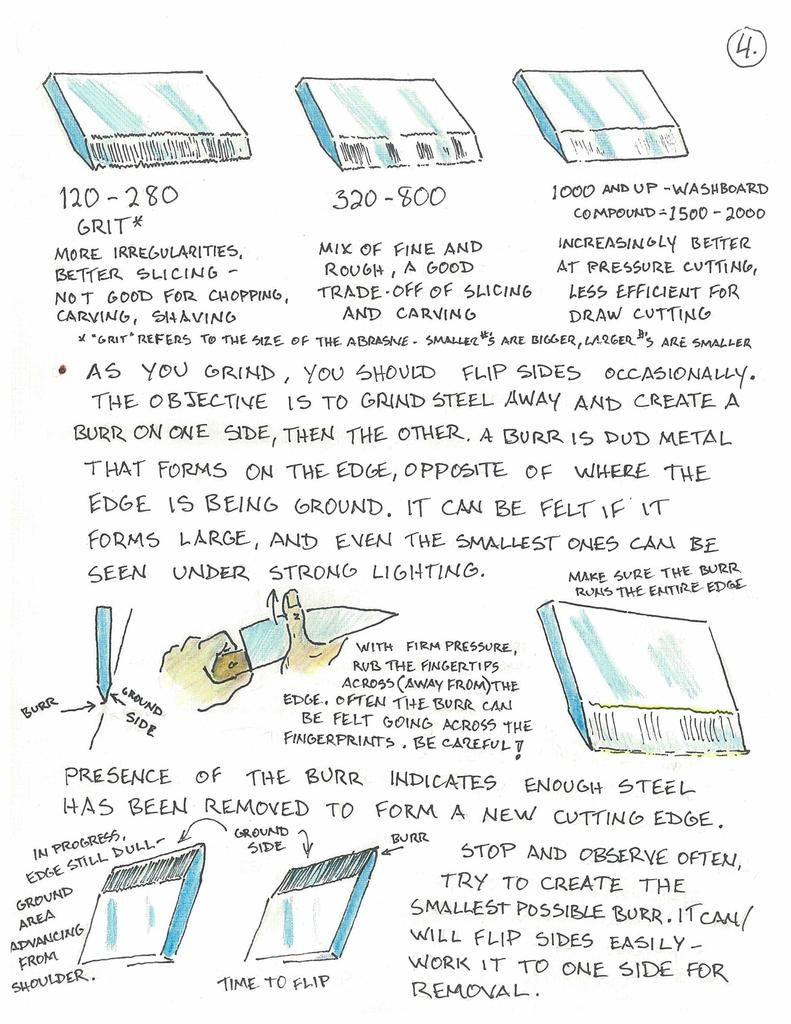 4.
120-280
GRIT*
MORE IRREGULARITIES,
BETTER SLICING -
NOT GOOD FOR CHOPPING,
CARVING, SHAVING
320-800
MIX OF FINE AND
ROUGH, A GOOD
TRADE-OFF OF SLICING
AND CARVING
1000 AND UP - WASHBOARD
COMPOUND = 1500 - 2000
INCREASINGLY BETTER
AT PRESSURE CUTTING,
LESS EFFICIENT FOR
DRAW CUTTING
* "GRIT" REFERS TO THE SIZE OF THE ABRASIVE - SMALLER #'S ARE BIGGER, LARGER #'S ARE SMALLER
• AS YOU GRIND, YOU SHOULD FLIP SIDES OCCASIONALLY.
THE OBJECTIVE IS TO GRIND STEEL AWAY AND CREATE A
BURR ON ONE SIDE, THEN THE OTHER. A BURR IS DUD METAL
THAT FORMS ON THE EDGE, OPPOSITE OF WHERE THE
EDGE IS BEING GROUND. IT CAN BE FELT IF IT
FORMS LARGE, AND EVEN THE SMALLEST ONES CAN BE
SEEN UNDER STRONG LIGHTING.
MAKE SURE THE BURR
RUNS THE ENTIRE EDGE
BURR
GROUND
SIDE
WITH FIRM PRESSURE,
RUB THE FINGERTIPS
ACROSS (AWAY FROM) THE
EDGE. OFTEN THE BURR CAN
BE FELT GOING ACROSS THE
FINGERPRINTS. BE CAREFUL!
PRESENCE OF THE BURR INDICATES ENOUGH STEEL
HAS BEEN REMOVED TO FORM A NEW CUTTING EDGE.
IN PROGRESS,
EDGE STILL DULL-
GROUND
AREA
ADVANCING
FROM
SHOULDER.
GROUND
SIDE
BURR
TIME TO FLIP
STOP AND OBSERVE OFTEN,
TRY TO CREATE THE
SMALLEST POSSIBLE BURR. IT CAN/
WILL FLIP SIDES EASILY -
WORK IT TO ONE SIDE FOR
REMOVAL.